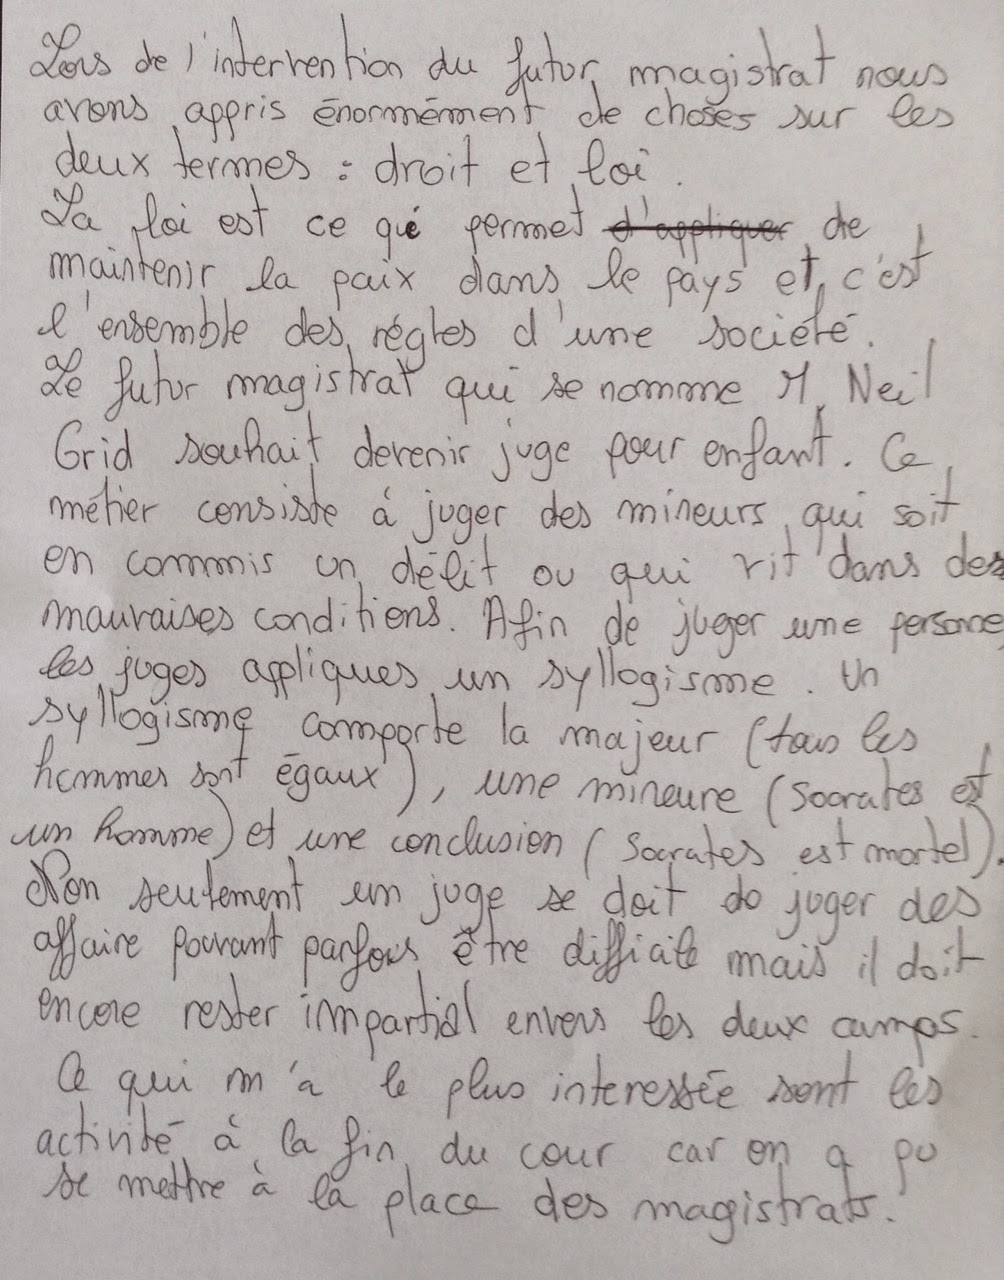 Lors de l'intervention du futur magistrat nous
avons appris énormément de choses sur les
deux termes : droit et loi.
La loi est ce qui permet d'appliquer de
maintenir la paix dans le pays et c'est
l'ensemble des régles d'une societé.
Le futur magistrat qui se nomme M. Neil
Grid souhait devenir juge pour enfant. Ce
métier consiste à juger des mineurs qui soit
en commis un délit ou qui vit dans des
mauvaises conditions. Afin de juger une personne
les juges appliques un syllogisme. Un
syllogisme comporte la majeur (tous les
hommes sont égaux), une mineure (Socrates est
un homme) et une conclusion (Socrates est mortel).
Non seulement un juge se doit de juger des
affaire pouvant parfois être difficile mais il doit
encore rester impartial envers les deux camps.
Ce qui m'a le plus interessée sont les
activité à la fin du cour car on a pu
se mettre à la place des magistrats.